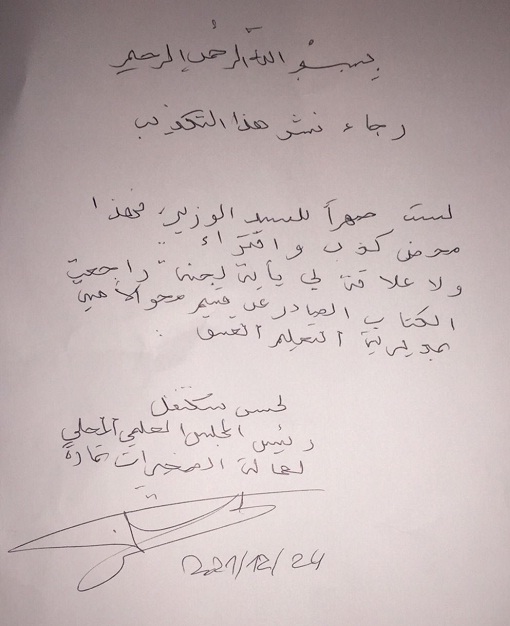 بسم الله الرحمن الرحيم
رجاء نشر هذا التكذيب
لست صهراً للسيد الوزير، فهذا
محض كذب وافتراء
ولا علاقة لي بأية لجنة راجعت
الكتاب الصادر عن قسم محو الأمية
بمديرية التعليم العتيق.
لحسن سكنفل
رئيس المجلس العلمي المحلي
لعمالة الصخيرات تمارة
2021/12/24